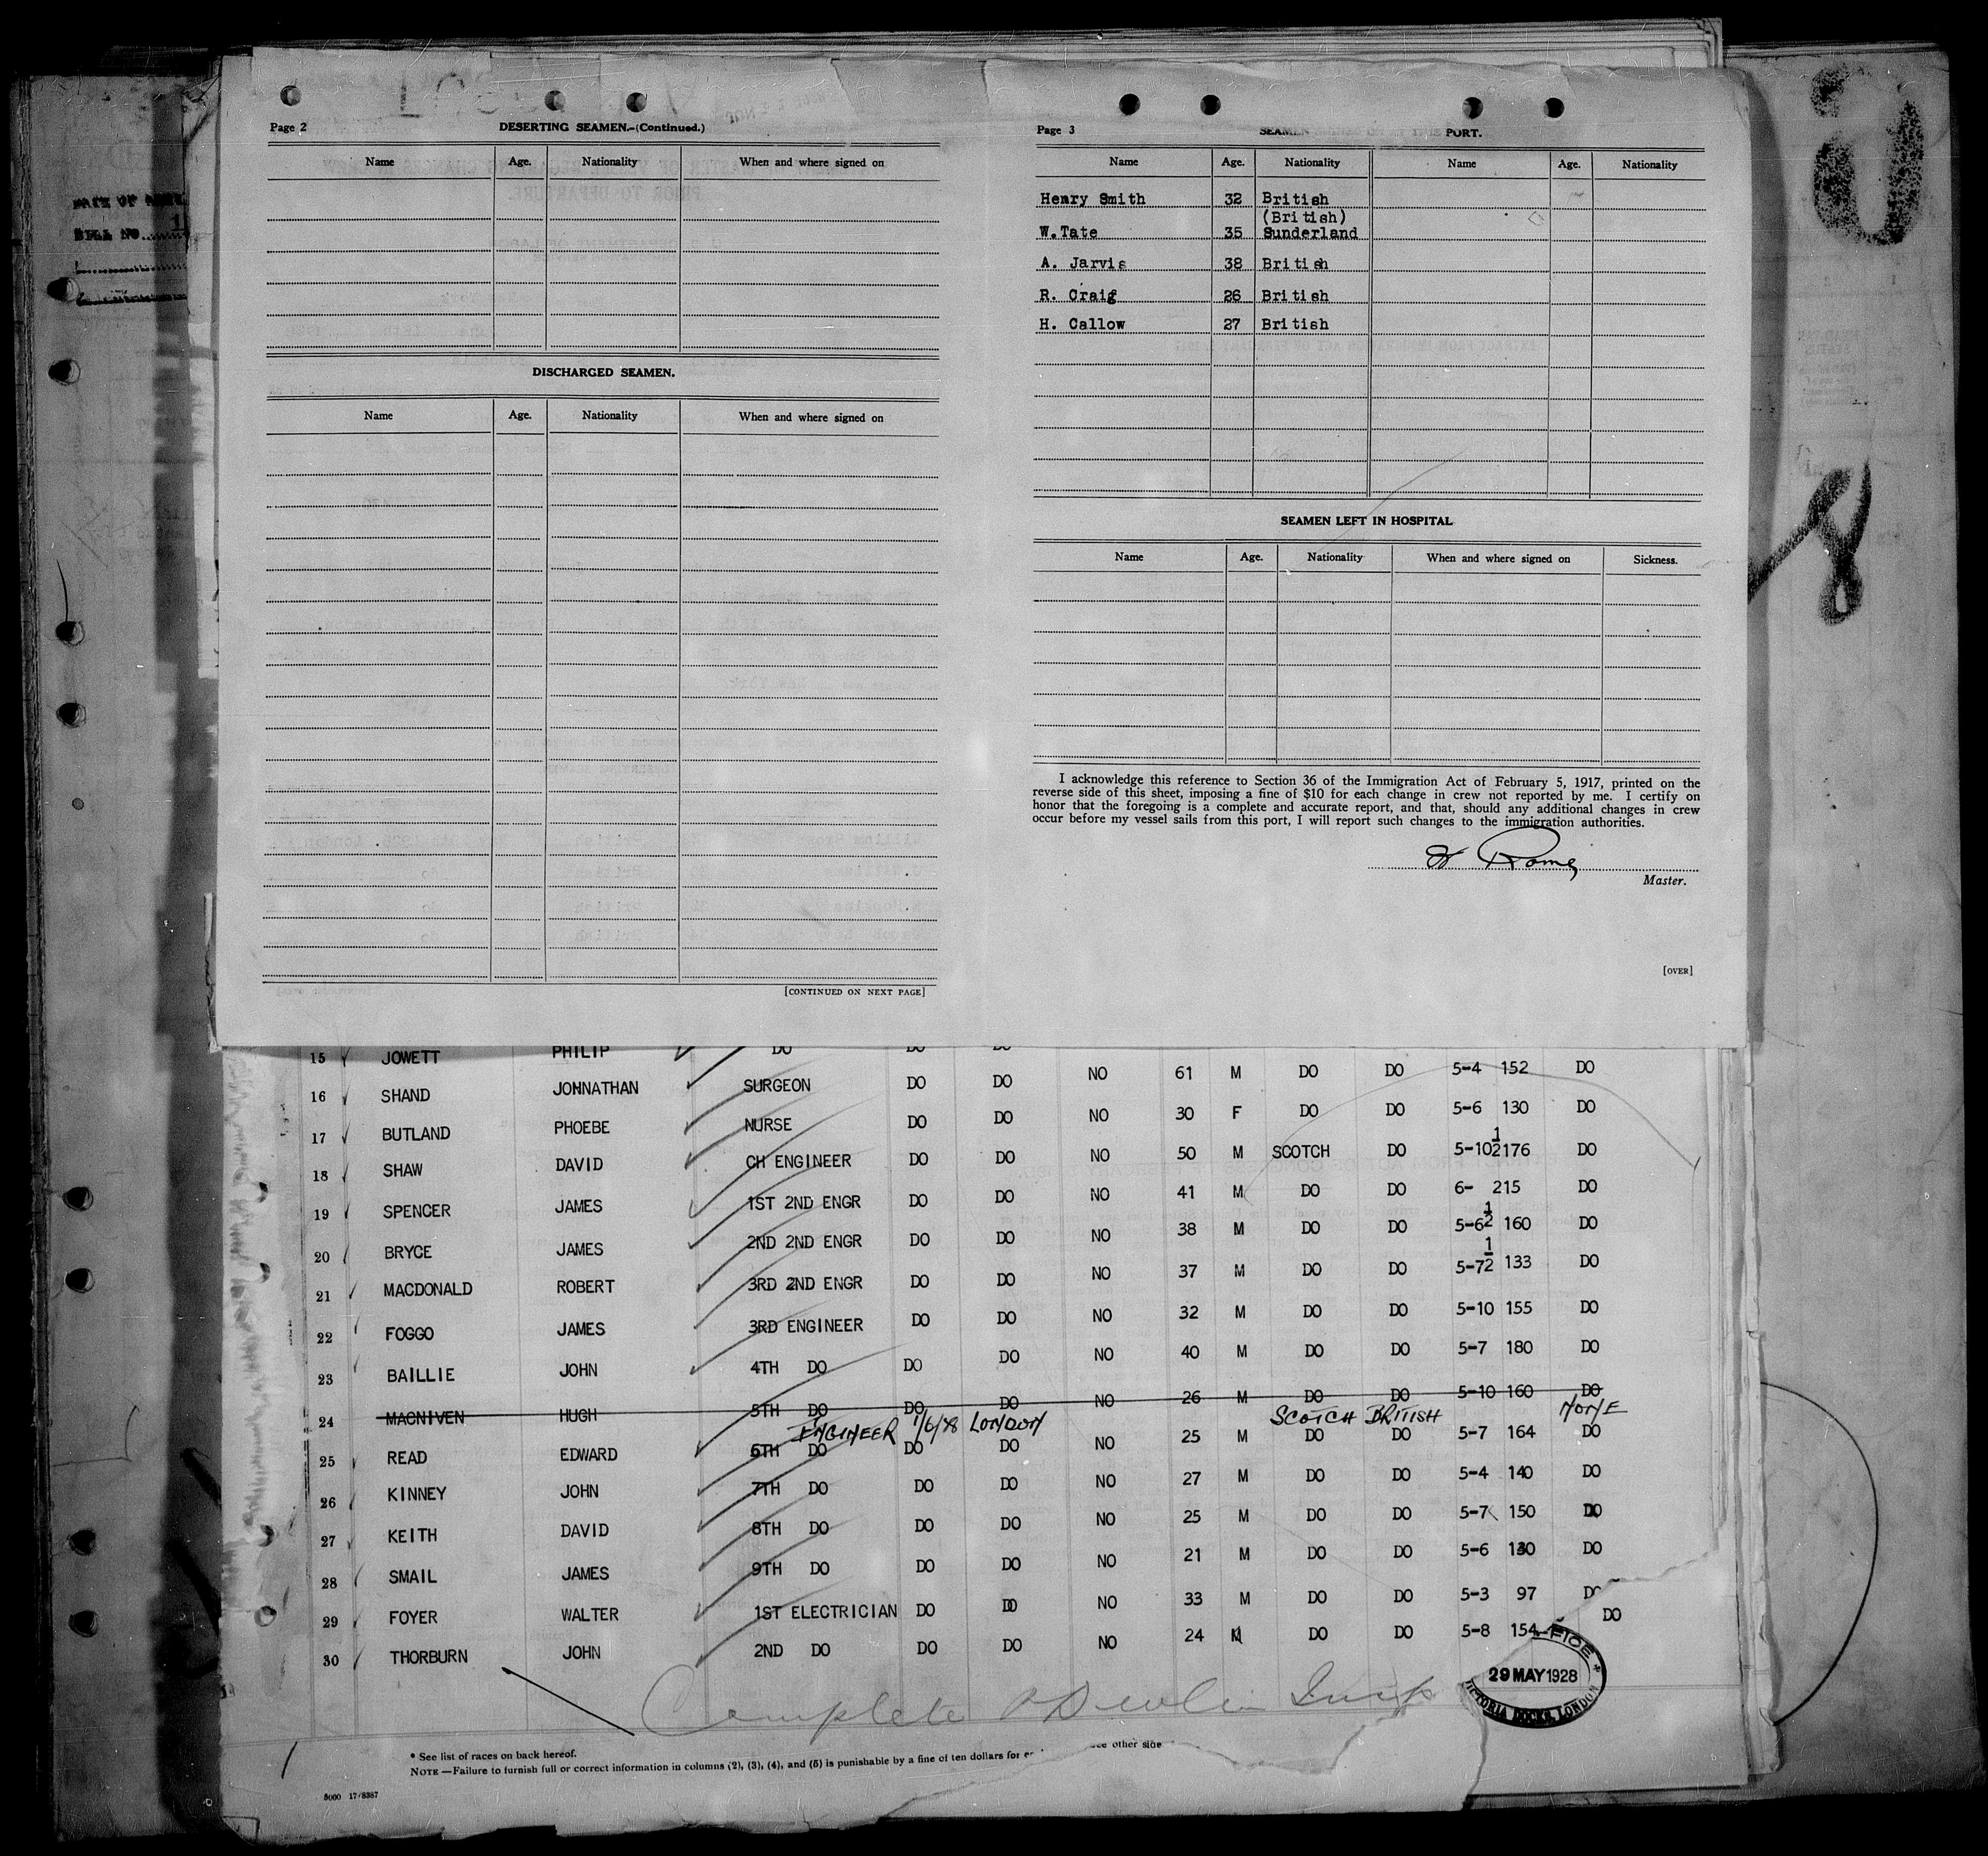 Page 2
DESERTING SEAMEN.-(Continued.)
Name Age. Nationality When and where signed on
DISCHARGED SEAMEN.
Name Age. Nationality When and where signed on
[CONTINUED ON NEXT PAGE]
Page 3
SEAMEN PORT.
Name Age. Nationality Name Age. Nationality
Henry Smith 32 British
(British)
W.Tate 35 Sunderland
A. Jarvis 38 British
R. Craig 26 British
H. Callow 27 British
SEAMEN LEFT IN HOSPITAL
Name Age. Nationality When and where signed on Sickness.
I acknowledge this reference to Section 36 of the Immigration Act of February 5, 1917, printed on the
reverse side of this sheet, imposing a fine of $10 for each change in crew not reported by me. I certify on
honor that the foregoing is a complete and accurate report, and that, should any additional changes in crew
occur before my vessel sails from this port, I will report such changes to the immigration authorities.
Master.
[OVER]
BILL NO.
15 JOWETT PHILIP DO DO DO
16 SHAND JOHNATHAN SURGEON DO DO NO 61 M DO DO 5-4 152 DO
17 BUTLAND PHOEBE NURSE DO DO NO 30 F DO DO 5-6 130 DO
18 SHAW DAVID CH ENGINEER DO DO NO 50 M SCOTCH DO 5-10½ 176 DO
19 SPENCER JAMES 1ST 2ND ENGR DO DO NO 41 M DO DO 6- 215 DO
20 BRYCE JAMES 2ND 2ND ENGR DO DO NO 38 M DO DO 5-6½ 160 DO
21 MACDONALD ROBERT 3RD 2ND ENGR DO DO NO 37 M DO DO 5-7½ 133 DO
22 FOGGO JAMES 3RD ENGINEER DO DO NO 32 M DO DO 5-10 155 DO
23 BAILLIE JOHN 4TH DO DO DO NO 40 M DO DO 5-7 180 DO
24 MACNIVEN HUGH 5TH DO DO DO NO 26 M DO DO 5-10 160 DO
ENGINEER 1/6/28 LONDON SCOTCH BRITISH NONE
25 READ EDWARD 6TH DO DO DO NO 25 M DO DO 5-7 164 DO
26 KINNEY JOHN 7TH DO DO DO NO 27 M DO DO 5-4 140 DO
27 KEITH DAVID 8TH DO DO DO NO 25 M DO DO 5-7 150 DO
28 SMAIL JAMES 9TH DO DO DO NO 21 M DO DO 5-6 130 DO
29 FOYER WALTER 1ST ELECTRICIAN DO DO NO 33 M DO DO 5-3 97 DO
30 THORBURN JOHN 2ND DO DO DO NO 24 M DO DO 5-8 154 DO
Complete
29 MAY 1928
VICTORIA DOCKS, LONDON
* See list of races on back hereof.
NOTE.—Failure to furnish full or correct information in columns (2), (3), (4), and (5) is punishable by a fine of ten dollars for see other side
5000 17/8387